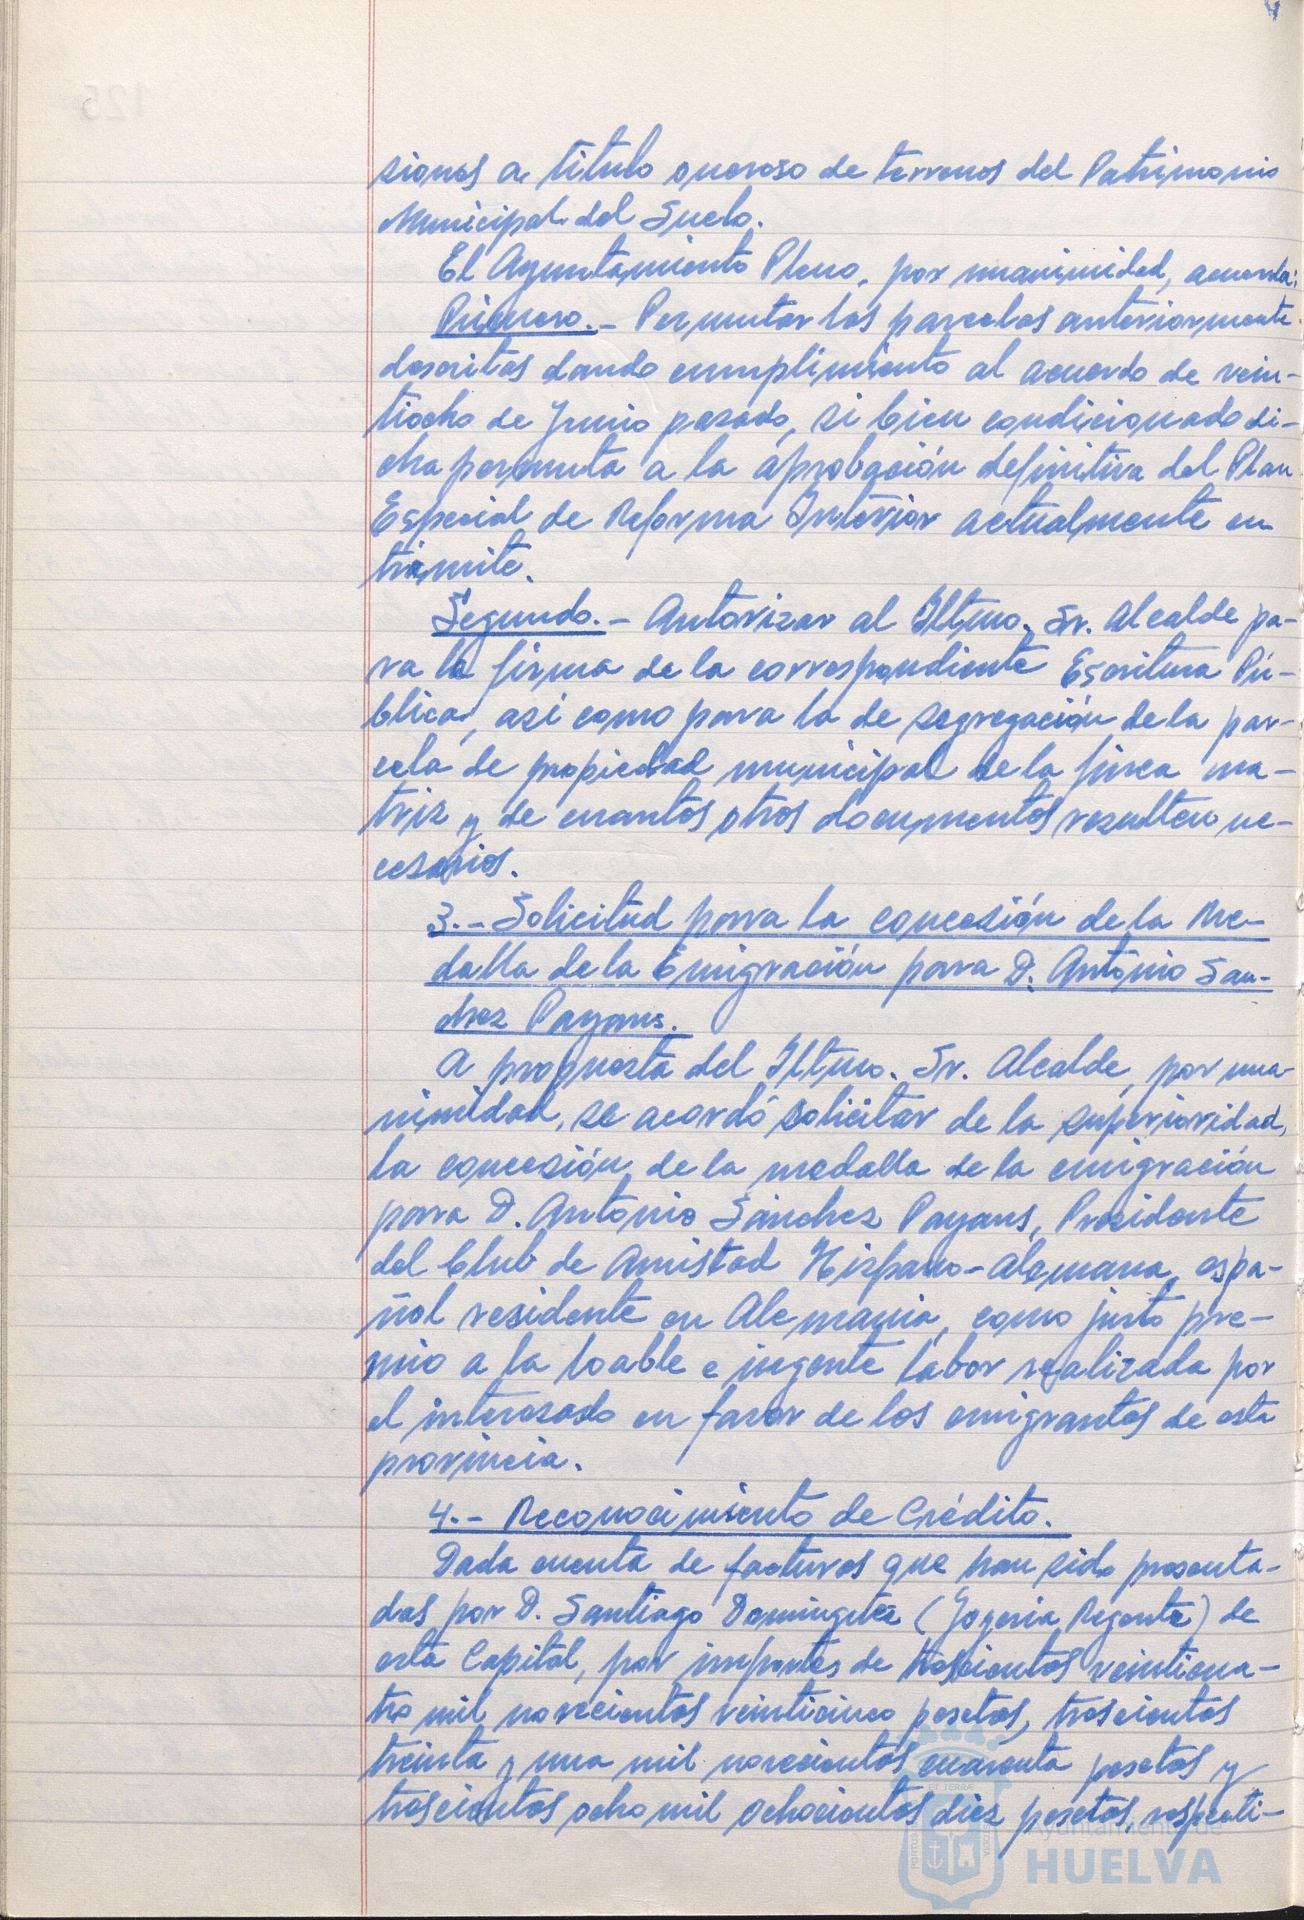 siones a título oneroso de terrenos del Patrimonio
Municipal del Suelo.
El Ayuntamiento Pleno, por unanimidad, acuerda:
Primero.- Permutar las parcelas anteriormente
descritas dando cumplimiento al acuerdo de vein-
tiocho de Junio pasado, si bien condicionado di-
cha permuta a la aprobación definitiva del Plan
Especial de Reforma Interior actualmente en
trámite.
Segundo.- Autorizar al Iltmo. Sr. Alcalde pa-
ra la firma de la correspondiente Escritura Pú-
blica, así como para la de segregación de la par-
cela de propiedad municipal de la finca ma-
triz y de cuantos otros documentos resulten ne-
cesarios.
3.- Solicitud para la concesión de la Me-
dalla de la Emigración para D. Antonio San-
chez Payans.
A propuesta del Iltmo. Sr. Alcalde, por una-
nimidad, se acordó solicitar de la superioridad,
la concesión de la medalla de la emigración
para D. Antonio Sánchez Payans, Presidente
del Club de Amistad Hispano-Alemana, espa-
ñol residente en Alemania, como justo pre-
mio a la loable e ingente labor realizada por
el interesado en favor de los emigrantes de esta
provincia.
4.- Reconocimiento de Crédito.
Dada cuenta de facturas que han sido presenta-
das por D. Santiago Domínguez (Joyería Regente) de
esta Capital, por importes de trescientos veinticua-
tro mil novecientos veinticinco pesetas, trescientos
treinta y una mil novecientos cuarenta pesetas y
trescientos ocho mil ochocientos diez pesetas, respecti-
Ayuntamiento de
HUELVA